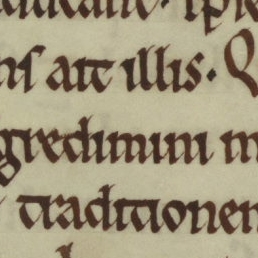 ns ait illis. Q
gredimini m
traditionem